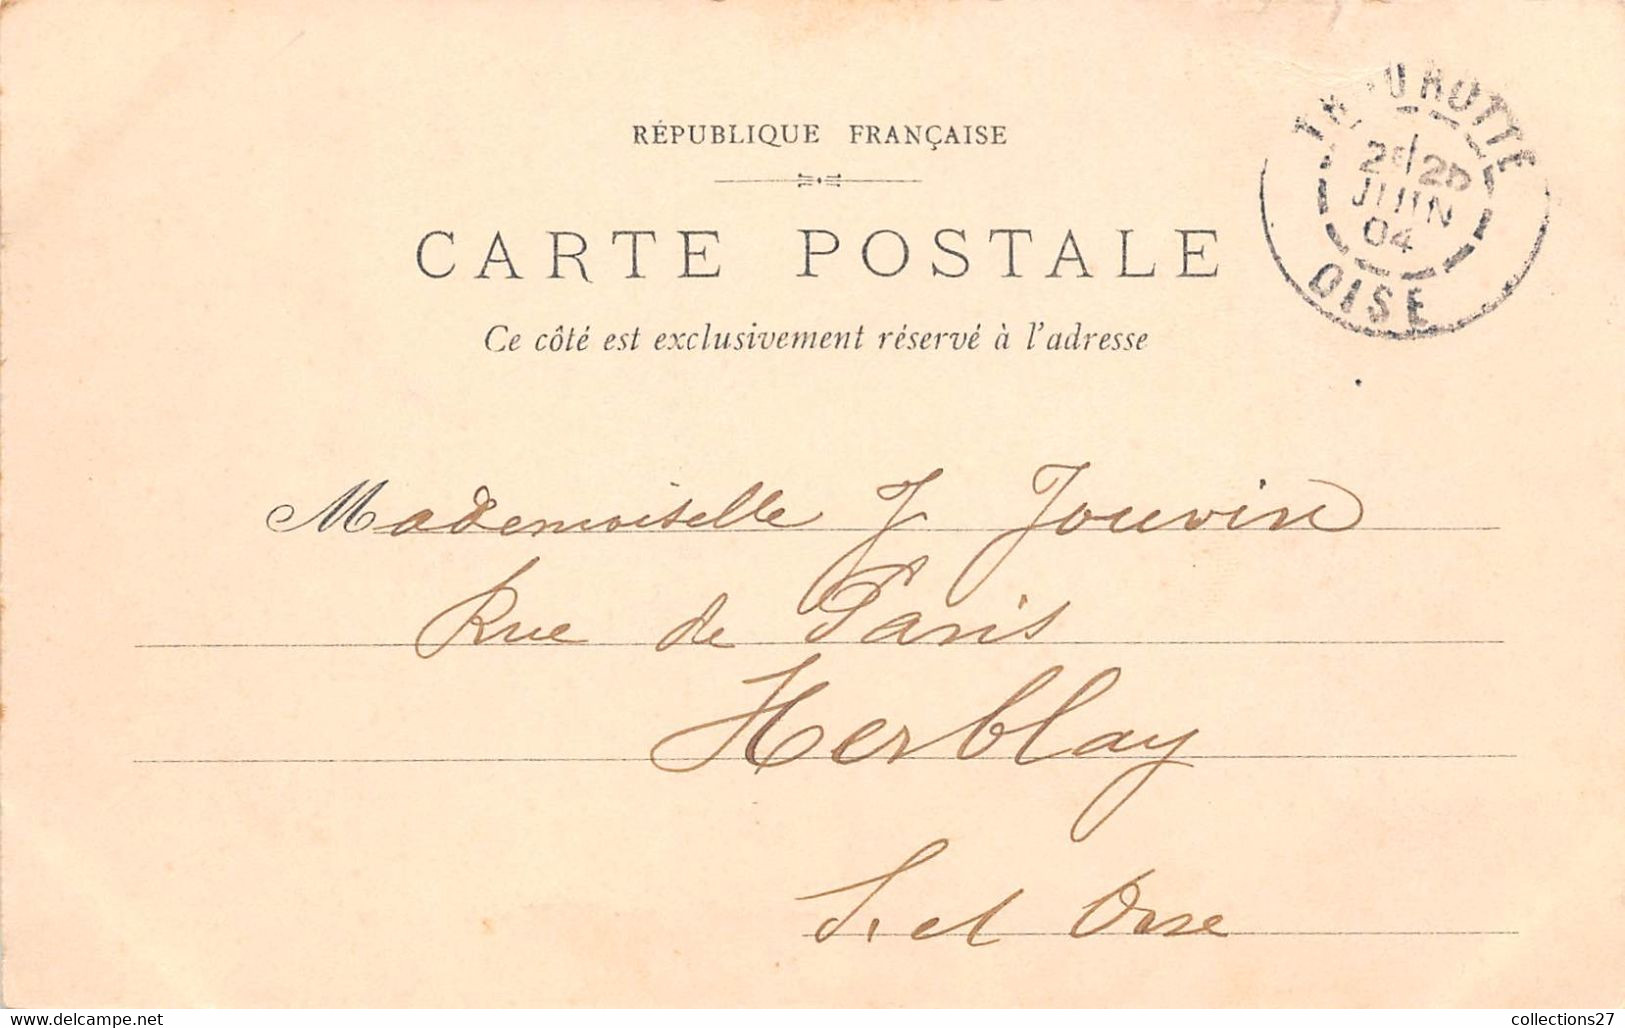 RÉPUBLIQUE FRANÇAISE
CARTE POSTALE
Ce côté est exclusivement réservé à l'adresse
THOUROTTE
25 JUIN
04
OISE
Mademoiselle J Jouvin
Rue de Paris
Herblay
S. et Oise
www.delcampe.net
collections27